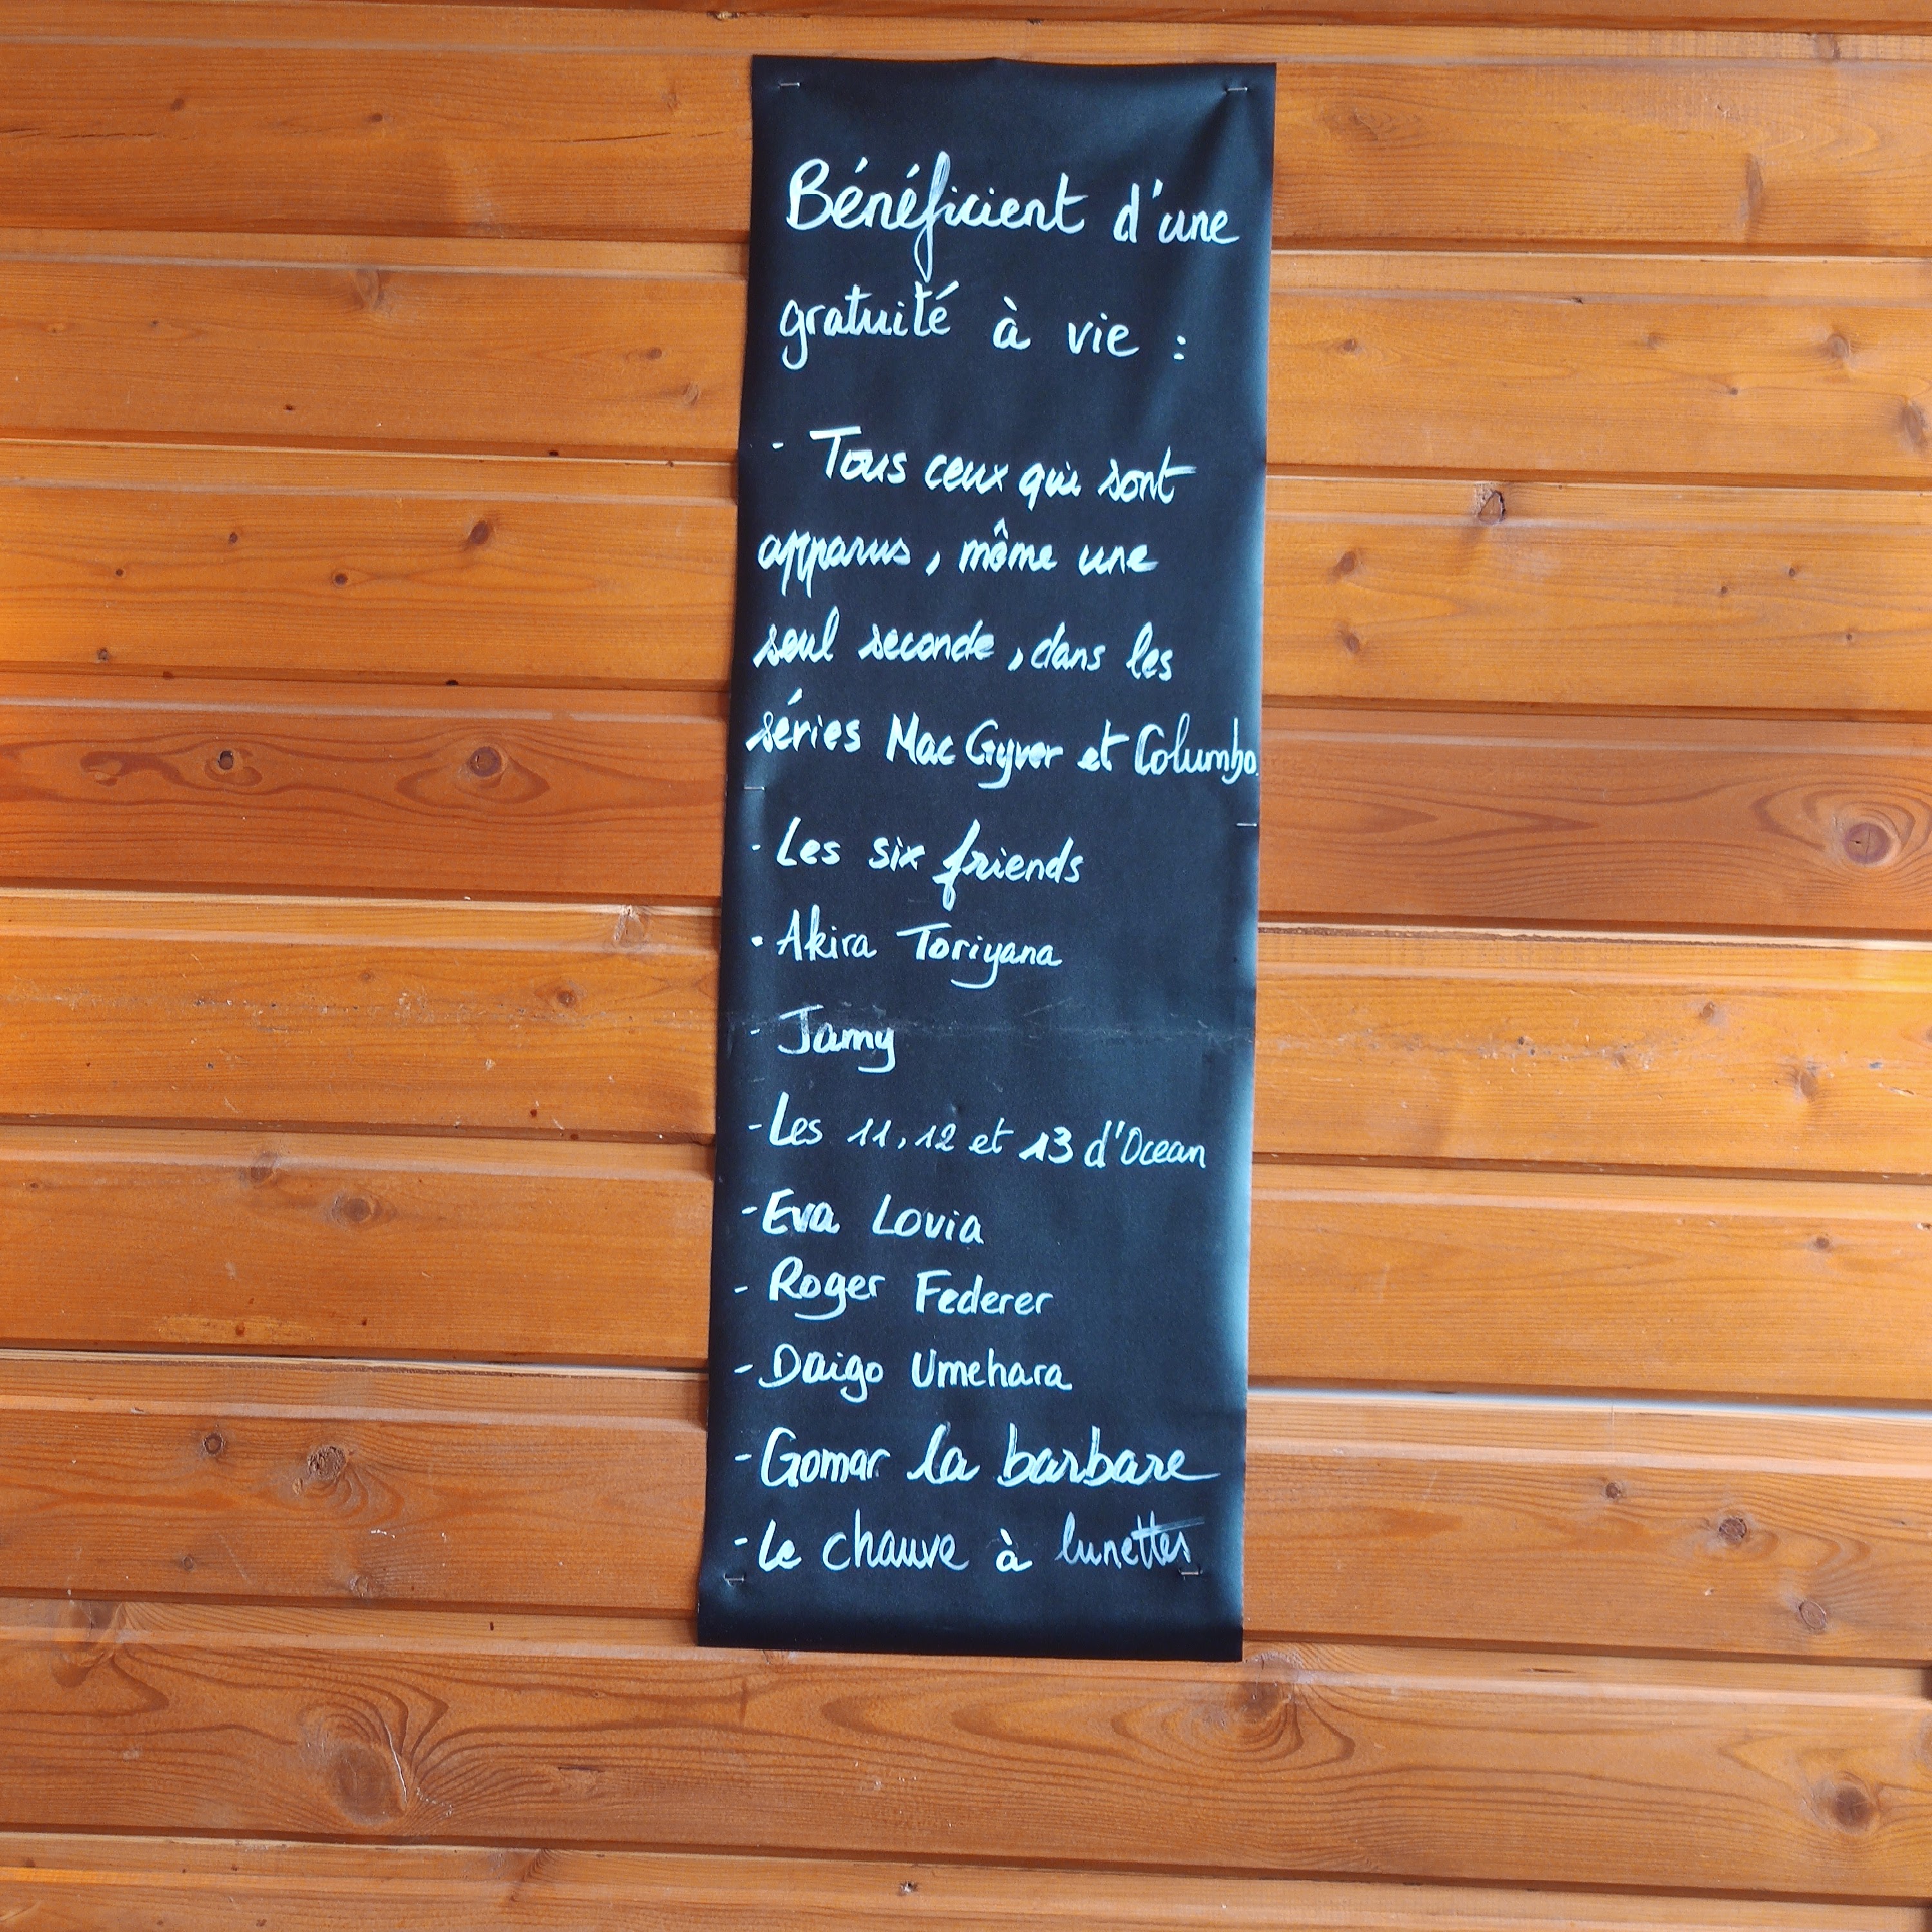 Bénéficient d'une
gratuité à vie :
- Tous ceux qui sont
apparus, même une
seul seconde, dans les
séries Mac Gyver et Columbo.
- Les six friends
- Akira Toriyana
- Jamy
- Les 11, 12 et 13 d'Ocean
- Eva Lovia
- Roger Federer
- Daigo Umehara
- Gomar la barbare
- Le chauve à lunettes